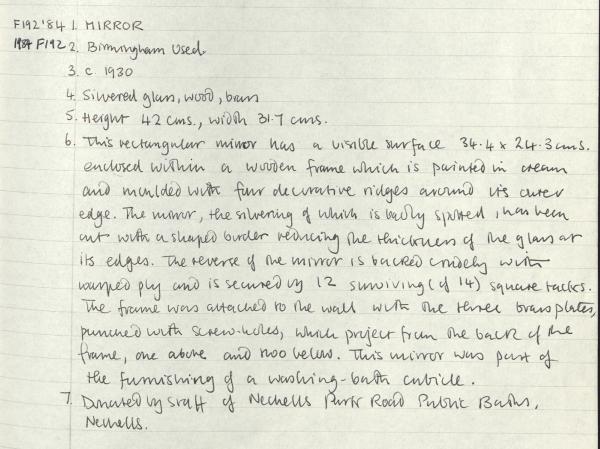 F192'84 1. MIRROR
1984 F192 2. Birmingham Used.
3. c. 1930
4. Silvered glass, wood, brass
5. Height 42 cms., width 31.7 cms.
6. This rectangular mirror has a visible surface 34.4 x 24.3 cms.
enclosed within a wooden frame which is painted in cream
and moulded with four decorative ridges around its outer
edge. The mirror, the silvering of which is badly spotted, has been
cut with a shaped border reducing the thickness of the glass at
its edges. The reverse of the mirror is backed crudely with
warped ply and is secured by 12 surviving (of 14) square tacks.
The frame was attached to the wall with the three brass plates,
punched with screw-holes, which project from the back of the
frame, one above and two below. This mirror was part of
the furnishing of a washing-bath cubicle.
7. Donated by staff of Nechells Park Road Public Baths,
Nechells.